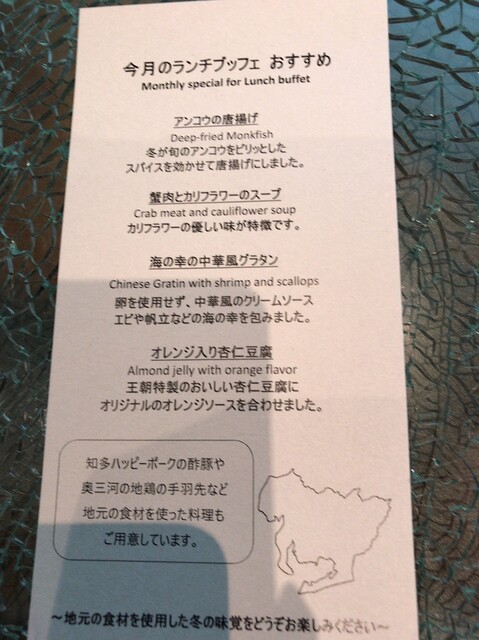 今月のランチブッフェ おすすめ
Monthly special for Lunch buffet
アンコウの唐揚げ
Deep-fried Monkfish
冬が旬のアンコウをピリッとした
スパイスを効かせて唐揚げにしました。
蟹肉とカリフラワーのスープ
Crab meat and cauliflower soup
カリフラワーの優しい味が特徴です。
海の幸の中華風グラタン
Chinese Gratin with shrimp and scallops
卵を使用せず、中華風のクリームソース
エビや帆立などの海の幸を包みました。
オレンジ入り杏仁豆腐
Almond jelly with orange flavor
王朝特製のおいしい杏仁豆腐に
オリジナルのオレンジソースを合わせました。
知多ハッピーポークの酢豚や
奥三河の地鶏の手羽先など
地元の食材を使った料理も
ご用意しています。
～地元の食材を使用した冬の味覚をどうぞお楽しみください～